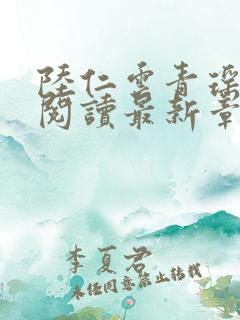 陸仁雲青瑤
閱讀最新章
李夏君
未经同意禁止转载